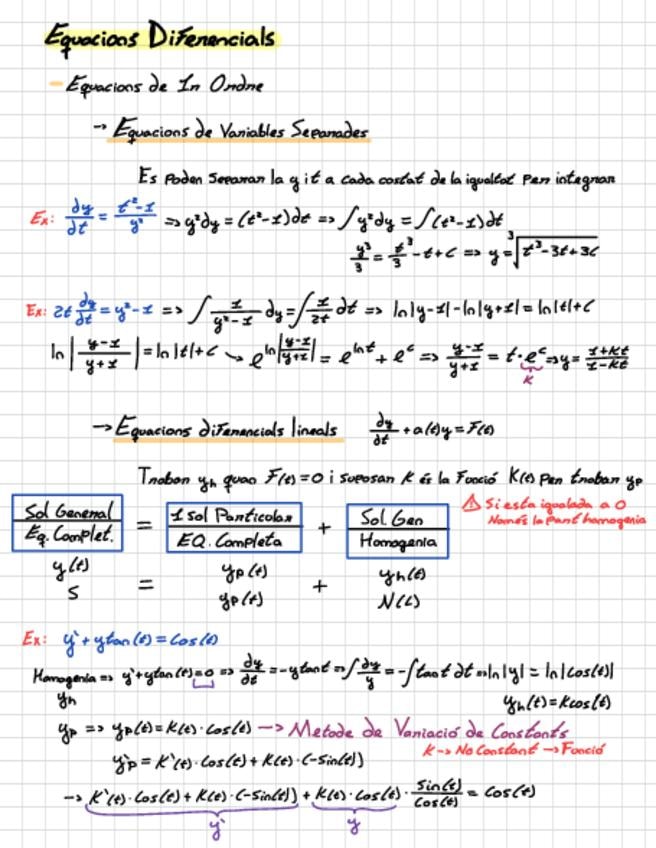 Equacions Diferencials
- Equacions de 1r Ordre
→ Equacions de Variables Separades
Es Poden Separar la y i t a cada costat de la igualtat per integrar
Ex: dy/dt = (t²-1)/y² => y²dy = (t²-1)dt => ∫y²dy = ∫(t²-1)dt
y³/3 = t³/3 - t + C => y = ∛(t³-3t+3C)
Ex: 2t dy/dt = y²-1 => ∫ 1/(y²-1) dy = ∫ 1/2t dt => ln|y-1| - ln|y+1| = ln|t| + C
ln|(y-1)/(y+1)| = ln|t| + C → e^(ln|(y-1)/(y+1)|) = e^(ln t) + e^c => (y-1)/(y+1) = t·e^c => y = (1+Kt)/(1-Kt)
K
→ Equacions diferencials lineals dy/dt + a(t)y = F(t)
Trobar yh quan F(t) = 0 i suposar K és la Funció K(t) Per trobar yp
Sol General / Eq. Complet. = 1 sol Particolar / EQ. Completa + Sol. Gen / Homogenia
⚠ Si esta igualada a 0
Només la part homogenia
y(t) = yp(t) + yh(t)
S = yp(t) + N(L)
Ex: y' + ytan(t) = Cos(t)
Homogenia => y' + ytan(t) = 0 => dy/dt = -ytant => ∫ dy/y = -∫tant dt => ln|y| = ln|Cos(t)|
yh yh(t) = Kcos(t)
yp => yp(t) = K(t)·Cos(t) → Metode de Variació de Constants
K → No Constant → Funció
y'p = K'(t)·Cos(t) + K(t)·(-Sin(t))
→ K'(t)·Cos(t) + K(t)·(-Sin(t)) + K(t)·Cos(t)·Sin(t)/Cos(t) = Cos(t)
y' y